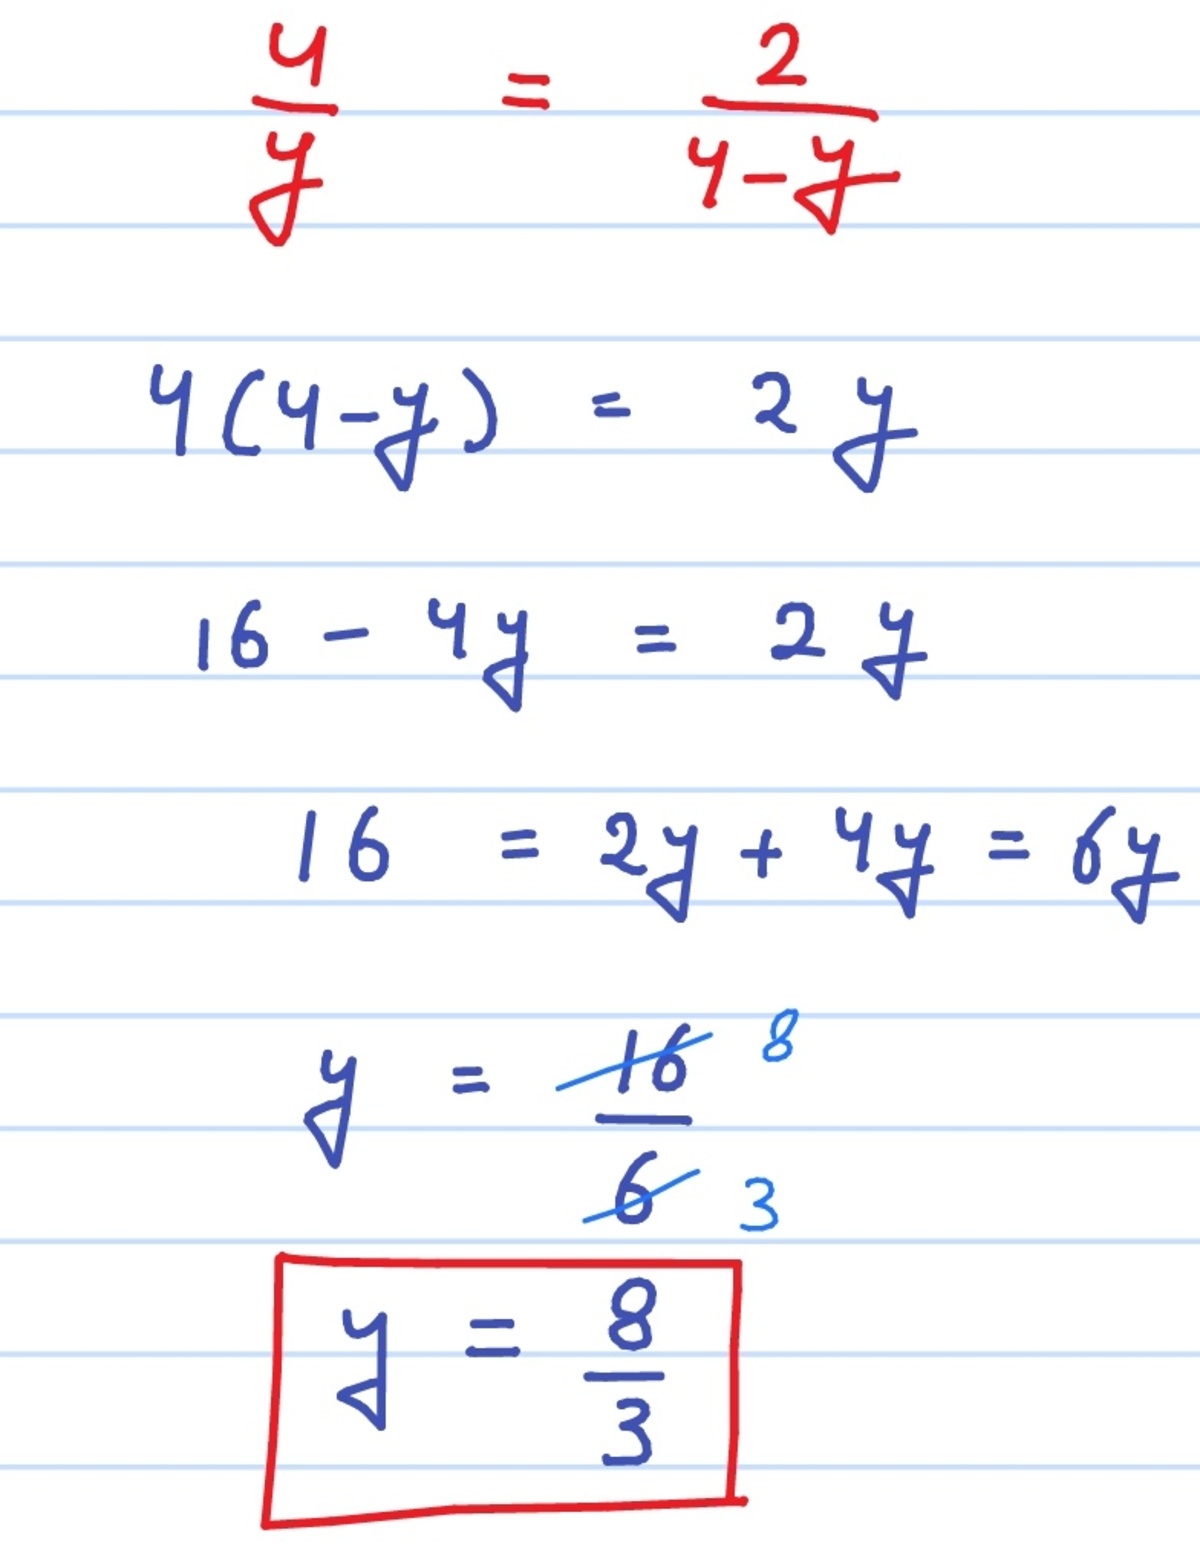 4/y = 2/(4-y)
4(4-y) = 2y
16 - 4y = 2y
16 = 2y + 4y = 6y
y = 16/6 8 3
y = 8/3